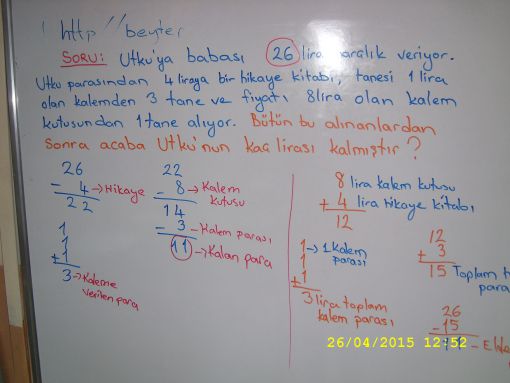 http //beyter
SORU: Utku'ya babası 26 lira harçlık veriyor.
Utku parasından 4 liraya bir hikaye kitabı, tanesi 1 lira
olan kalemden 3 tane ve fiyatı 8 lira olan kalem
kutusundan 1 tane alıyor. Bütün bu alınanlardan
sonra acaba Utku'nun kaç lirası kalmıştır?
26
- 4 → Hikaye
22
1
1
+ 1
3 → Kaleme
verilen para
22
- 8 → Kalem
kutusu
14
- 3 → Kalem parası
11 → Kalan para
8 lira kalem kutusu
+ 4 lira hikaye kitabı
12
1 → 1 kalem
parası
1
+ 1
3 lira toplam
kalem parası
12
+ 3
15 Toplam
para
26
- 15
26/04/2015 12:52